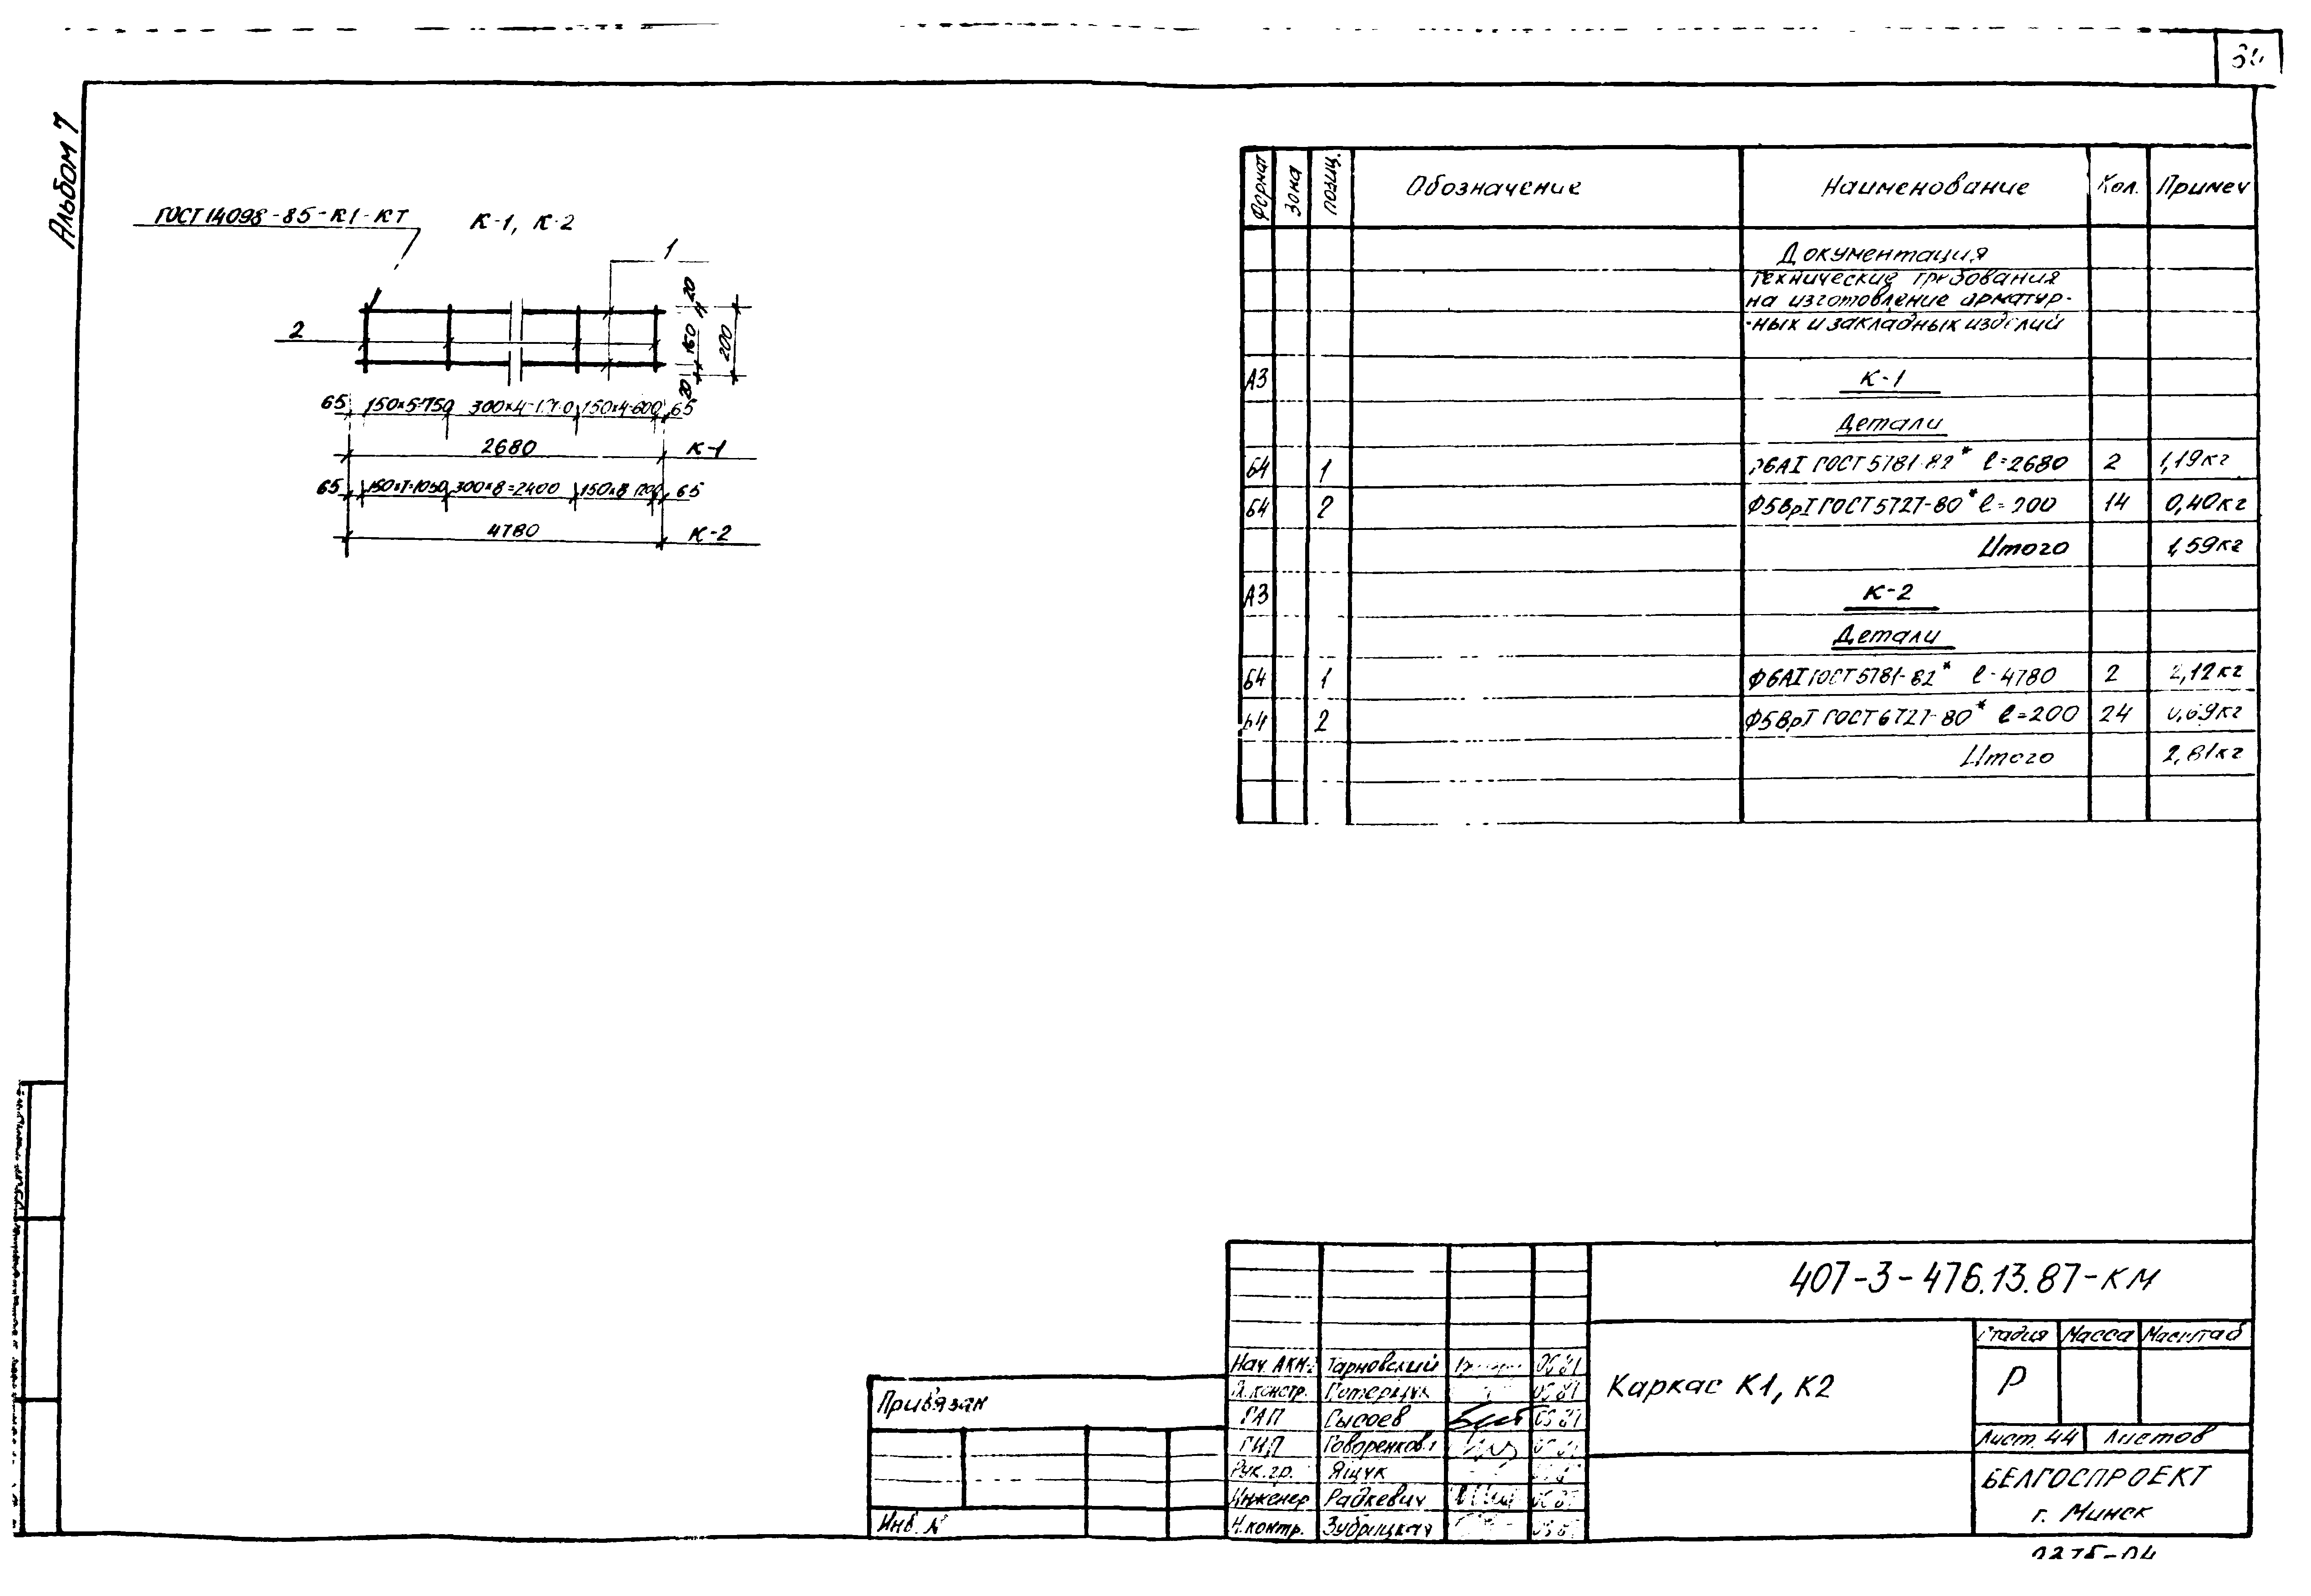 Альбом 7
ГОСТ 14098-85-К1-КТ
К-1, К-2
1
2
20
160
20
200
65 150х5=750 150х4=600 65
2680 К-1
65 150х7=1050 300х8=2400 65
4780 К-2
Формат Зона Позиц. Обозначение Наименование Кол. Примеч
Документация
Технические требования
на изготовление арматур-
-ных и закладных изделий
А3 К-1
Детали
Б4 1 6АI ГОСТ 5781-82* ℓ=2680 2 1,19кг
Б4 2 Ф5ВрI ГОСТ 5727-80* ℓ=200 14 0,40кг
Итого 1,59кг
А3 К-2
Детали
Б4 1 Ф6АI ГОСТ 5781-82* ℓ-4780 2 2,12кг
Б4 2 Ф5ВрI ГОСТ 6727-80* ℓ=200 24 0,69кг
Итого 2,81кг
407-3-476.13.87-КМ
Нач. АКМ-2 Тарновский
Гл. констр.
ГАП Сысоев
ГИП
Рук. гр. Ящук
Инженер Радкевич
Н.контр. Зубрицкая
Каркас К1, К2
Стадия Масса Масштаб
Р
Лист 44 Листов
БЕЛГОСПРОЕКТ
г. Минск
Привязан
Инв. №